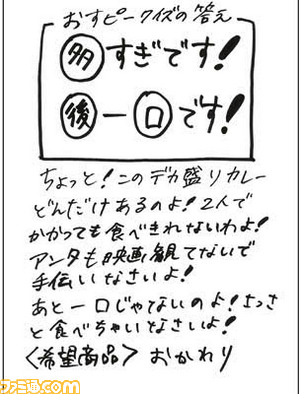 おすピークイズの答え
多すぎです!
後一口です!
ちょっと!このデカ盛りカレー
どんだけあるのよ!2人で
かかっても食べきれないわよ!
アンタも映画観てないで
手伝いなさいよ!
あと一口じゃないのよ!さっさ
と食べちゃいなさいよ!
<希望商品> おかわり
ファミ通.com